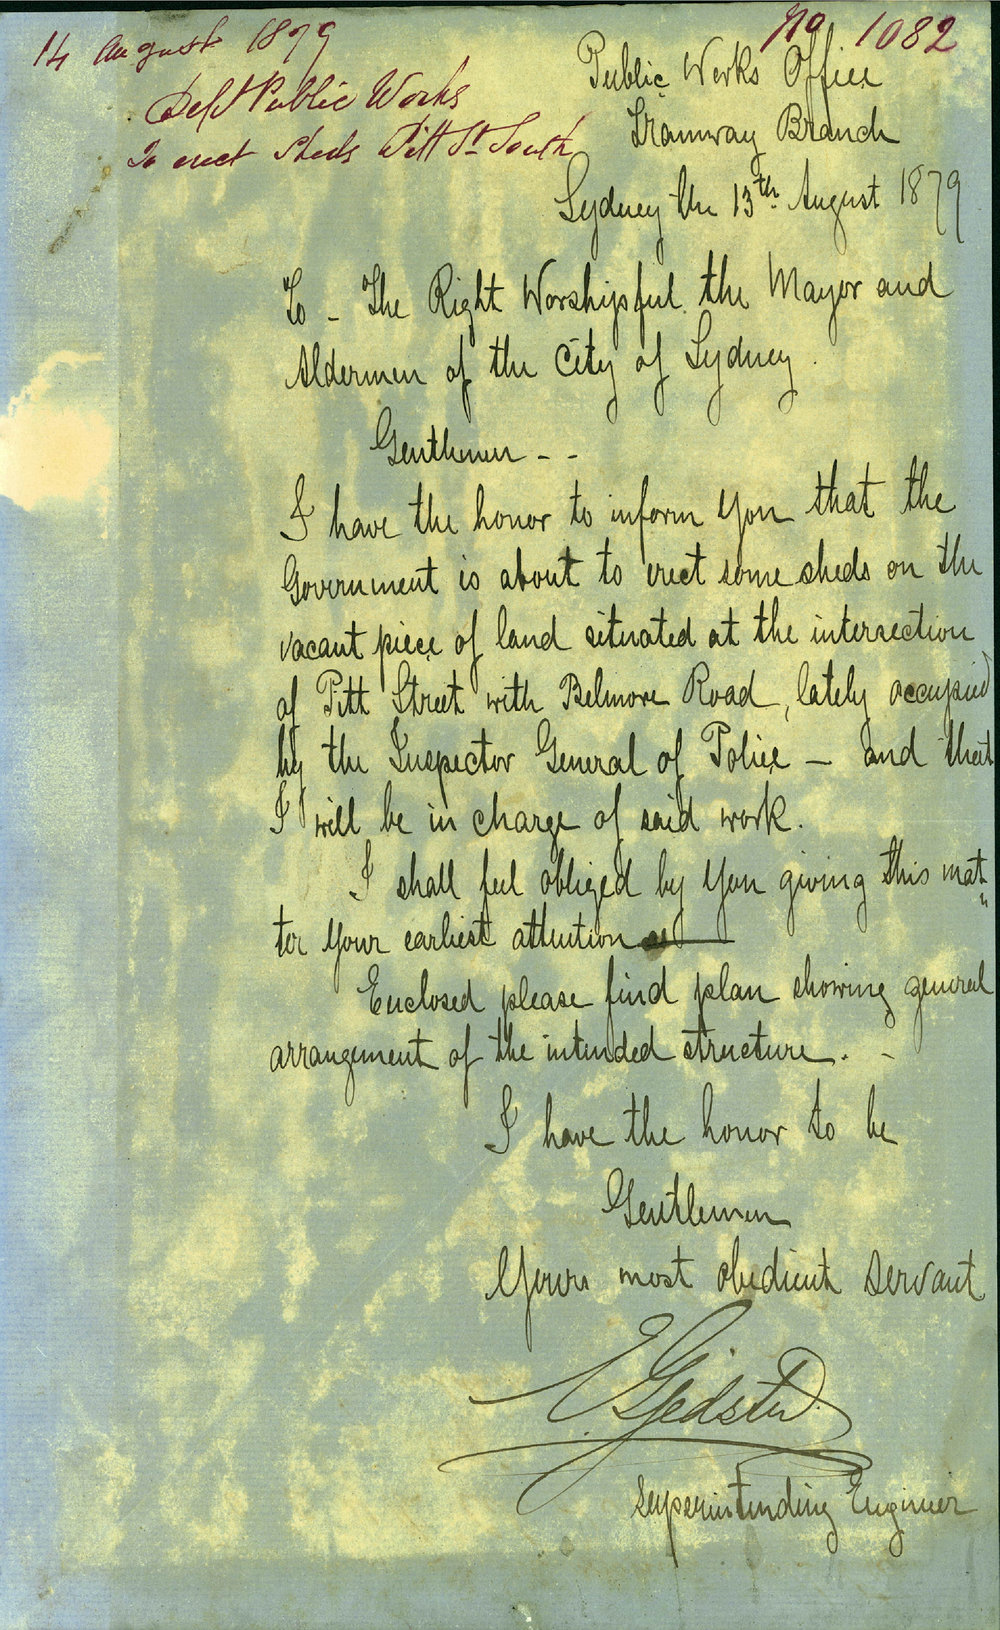 14 August 1879
No 1082
Dept Public Works
To erect Sheds Pitt St South
Public Works Office
Tramway Branch
Sydney the 13th August 1879
To - The Right Worshipful the Mayor and
Aldermen of the City of Sydney.
Gentlemen - -
I have the honor to inform you that the
Government is about to erect some sheds on the
vacant piece of land situated at the intersection
of Pitt Street with Belmore Road, lately occupied
by the Inspector General of Police — and that
I will be in charge of said work.
I shall feel obliged by you giving this mat"
ter your earliest attention
Enclosed please find plan showing general
arrangement of the intended structure. -
I have the honor to be
Gentlemen
Yours most obedient servant
Superintending Engineer